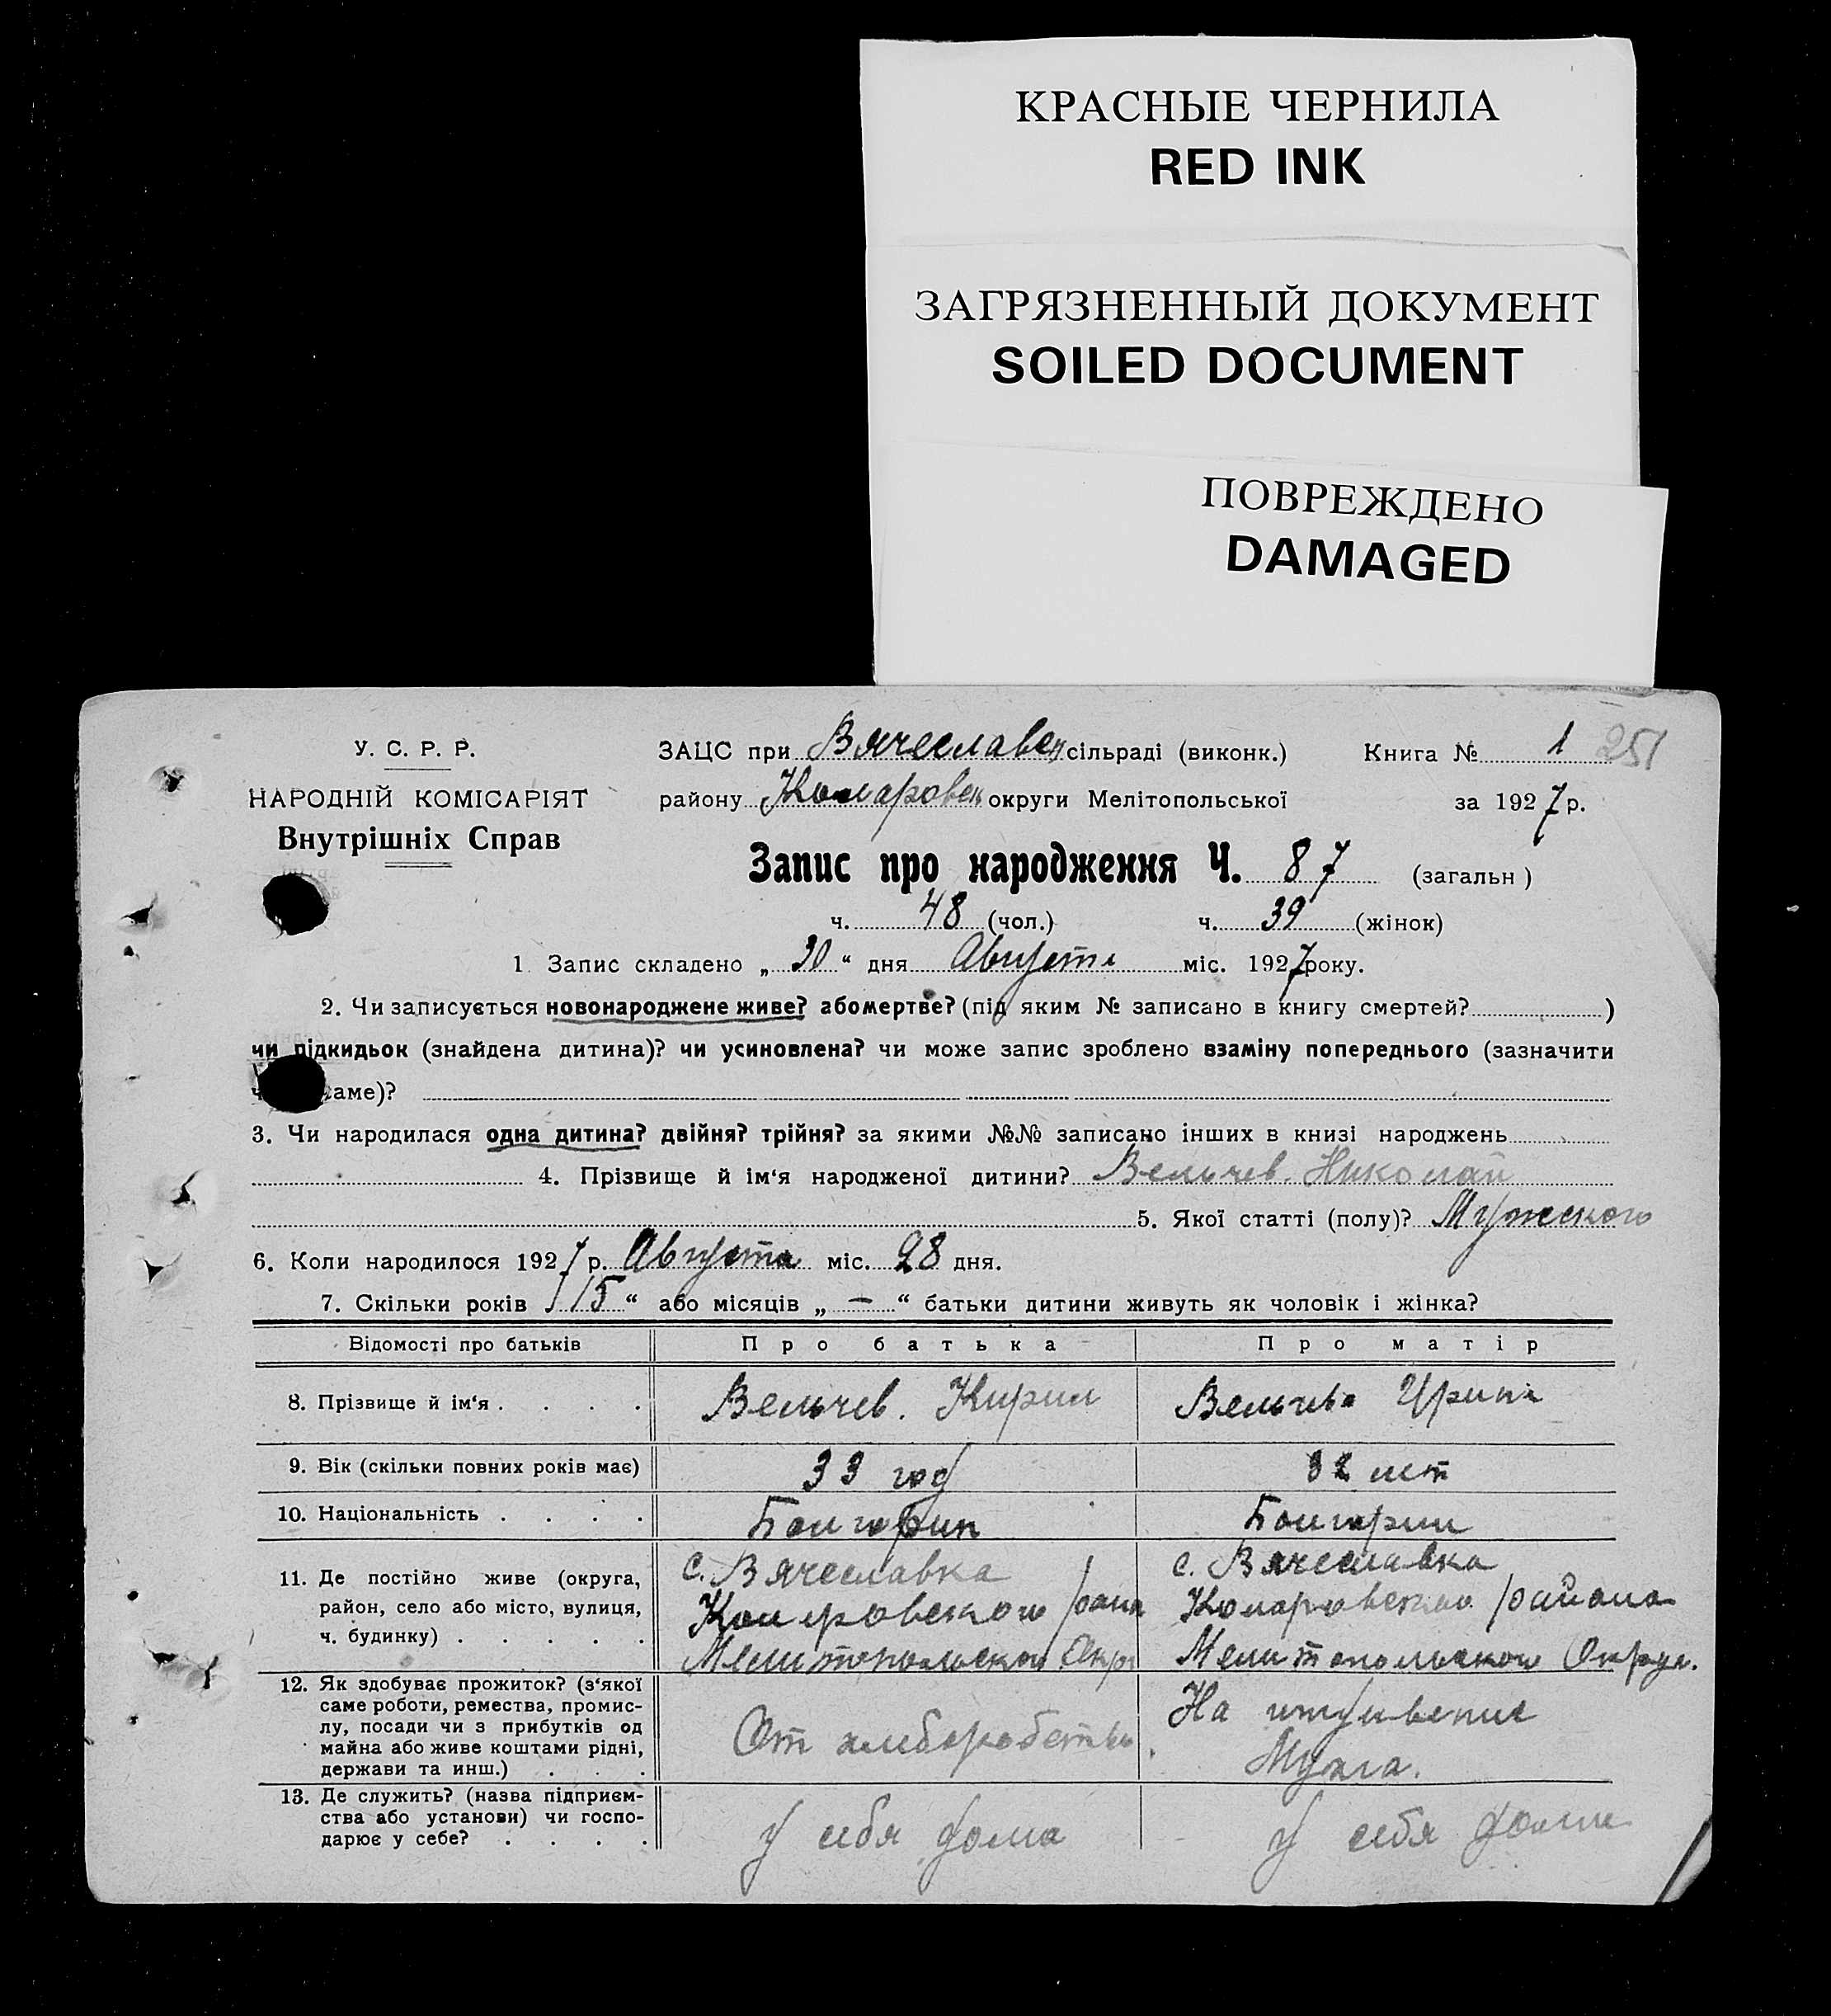 КРАСНЫЕ ЧЕРНИЛА
RED INK
ЗАГРЯЗНЕННЫЙ ДОКУМЕНТ
SOILED DOCUMENT
ПОВРЕЖДЕНО
DAMAGED
У. С. Р. Р.
НАРОДНІЙ КОМІСАРІЯТ
Внутрішніх Справ
ЗАЦС при Вячеславск сільраді (виконк.) Книга № 1 251
району Комаровск округи Мелітопольської за 1927 р.
Запис про народження Ч. 87 (загальн)
ч. 48 (чол.) ч. 39 (жінок)
1 Запис складено „30“ дня Августа міс. 1927 року.
2. Чи записується новонароджене живе? або мертве? (під яким № записано в книгу смертей? )
чи підкидьок (знайдена дитина)? чи усиновлена? чи може запис зроблено взаміну попереднього (зазначити
саме)?
3. Чи народилася одна дитина? двійня? трійня? за якими №№ записано інших в книзі народжень
4. Прізвище й ім‘я народженої дитини? Вельчев. Николай
5. Якої статті (полу)? Мужского
6. Коли народилося 1927 р. Августа міс. 28 дня.
7. Скільки років 15 “ або місяців „ — “ батьки дитини живуть як чоловік і жінка?
Відомості про батьків Про батька Про матір
8. Прізвище й ім‘я . . . . Вельчев. Кирил Вельчева Ирина
9. Вік (скільки повних років має) 33 год 32 лет
10. Національність . . . . Болгарин Болгарин
11. Де постійно живе (округа, район, село або місто, вулиця, ч. будинку) . . . . .
с. Вячеславка
Комаровского район
Мелитопольской Окр
с. Вячеславка
Комаровского района
Мелитопольского Округа.
12. Як здобуває прожиток? (з‘якої
саме роботи, ремества, промис-
лу, посади чи з прибутків од
майна або живе коштами рідні,
держави та инш.) . . .
От хлеборобства.
На иждивение
Мужа.
13. Де служить? (назва підприєм-
ства або установи) чи госпо-
дарює у себе? . . . .
у себя дома
у себя дома